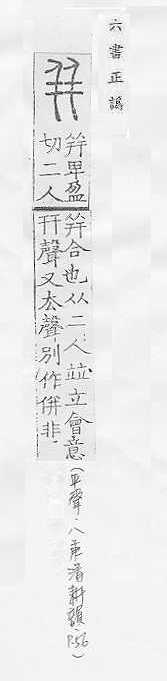 六書正譌
幷卑盈
切二人
幷合也从二人竝立會意
幵聲又去聲別作併非
(平聲.八庚清耕韻.P.56)